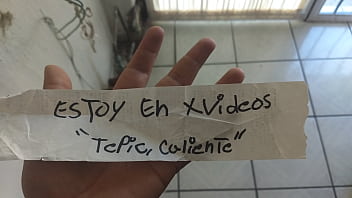 ESTOY En XVideos
"Tepic, caliente"